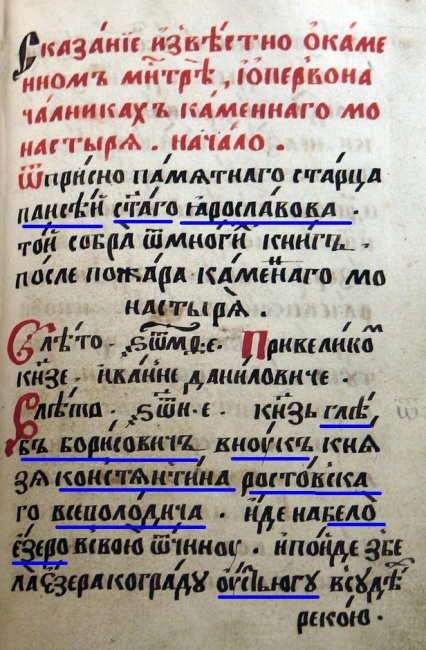 Сказа́нїе и҆звѣ́стно ѡ҆ка́ме
нномъ мн҃трѣ̀, іѻперво́на
ча́лникахъ ка́меннаго мо
настырѧ̀. нача́ло.
ѿпри́сно па́мѧтнаго ста́рца
паисе́и ст҃а́го ꙗросла́вова.
то́й собра̀ ѿмно́ги кни́гъ.
по́сле пожа́ра ка́менаго мо
настырѧ̀.
лѣ́то. Привелико
кнѕе. ива́нне дани́ловиче.
кнѕь глѣ́
бъ бори́сович внꙋ́къ кнѧ
зѧ констѧнти́на росто́вска
го всеволо́дича. и́де набело̀
е́зеро всвою̀ ѿчинꙋ. ипои́де збе
ла е́зера когра́дꙋ ᲂу҆́стьюгꙋ всꙋ́дѣ
реко́ю.